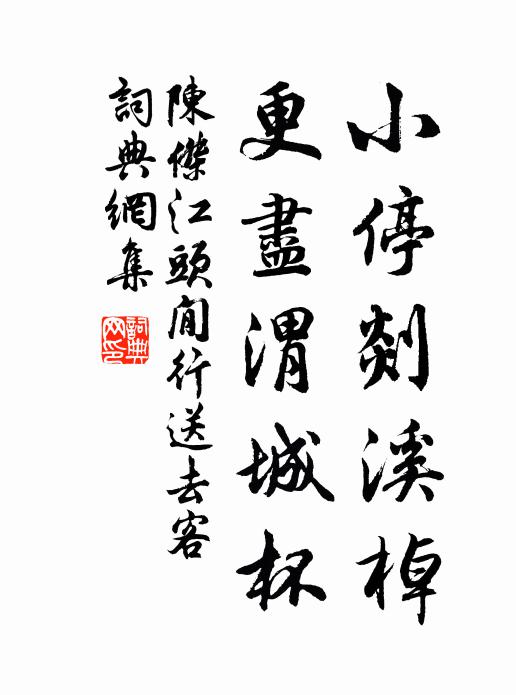 小停剡溪棹
更盡渭城杯
陳傑江頭閒行送去客
詞典網集
詞典網印